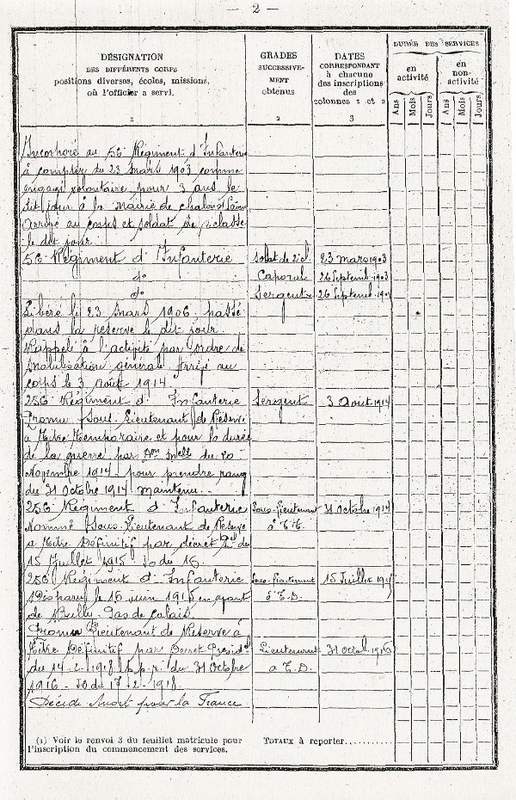 — 2 —
DÉSIGNATION
DES DIFFÉRENTS CORPS
positions diverses, écoles, missions,
où l'officier a servi.
1
GRADES
SUCCESSIVE-
MENT
obtenus
2
DATES
CORRESPONDANT
à chacune
des inscriptions
des
colonnes 1 et 2
3
DURÉE DES SERVICES
en
activité
en
non-
activité
Ans
Mois
Jours
Ans
Mois
Jours
Incorporé au 56 Régiment d'Infanterie
à compter du 23 Mars 1903 comme
engagé volontaire pour 3 ans le
dit jour à la mairie de Chalon s/ Saône
Arrivé au corps et soldat de 2e classe
le dit jour
56 Régiment d'Infanterie soldat de 2 cl 23 mars 1903
do Caporal 26 Septemb. 1903
do Sergent 26 Septemb. 190
Libéré le 23 Mars 1906, passé
dans la réserve le dit jour
Rappelé à l'activité par ordre de
Mobilisation générale arrivé au
corps le 3 août 1914
256 Régiment d'Infanterie Sergent 3 Août 1914
Promu Sous-Lieutenant de Réserve
à titre temporaire et pour la durée
de la guerre par du 10
Novembre 1914 pour prendre rang
du 31 Octobre 1914 Maintenu
256 Régiment d'Infanterie Sous-Lieutenant 31 Octobre 1914
Nommé Sous-Lieutenant de Réserve à T.T.
à titre définitif par décret du
15 Juillet 1915 Jo du 16
256 Régiment d'Infanterie Sous-Lieutenant 15 Juillet 1915
Disparu le 16 Juin 1915 en avant à T.D.
de Pas de Calais
Promu Lieutenant de Réserve à
titre Définitif par Décret Lieutenant 31 Octob. 1916
du 14-2-1918 p.r. du 31 Octobre à T.D.
1916 - Jo du 17-2-1918
Décédé Mort pour la France
(1) Voir le renvoi 3 du feuillet matricule pour
l'inscription du commencement des services.
TOTAUX à reporter